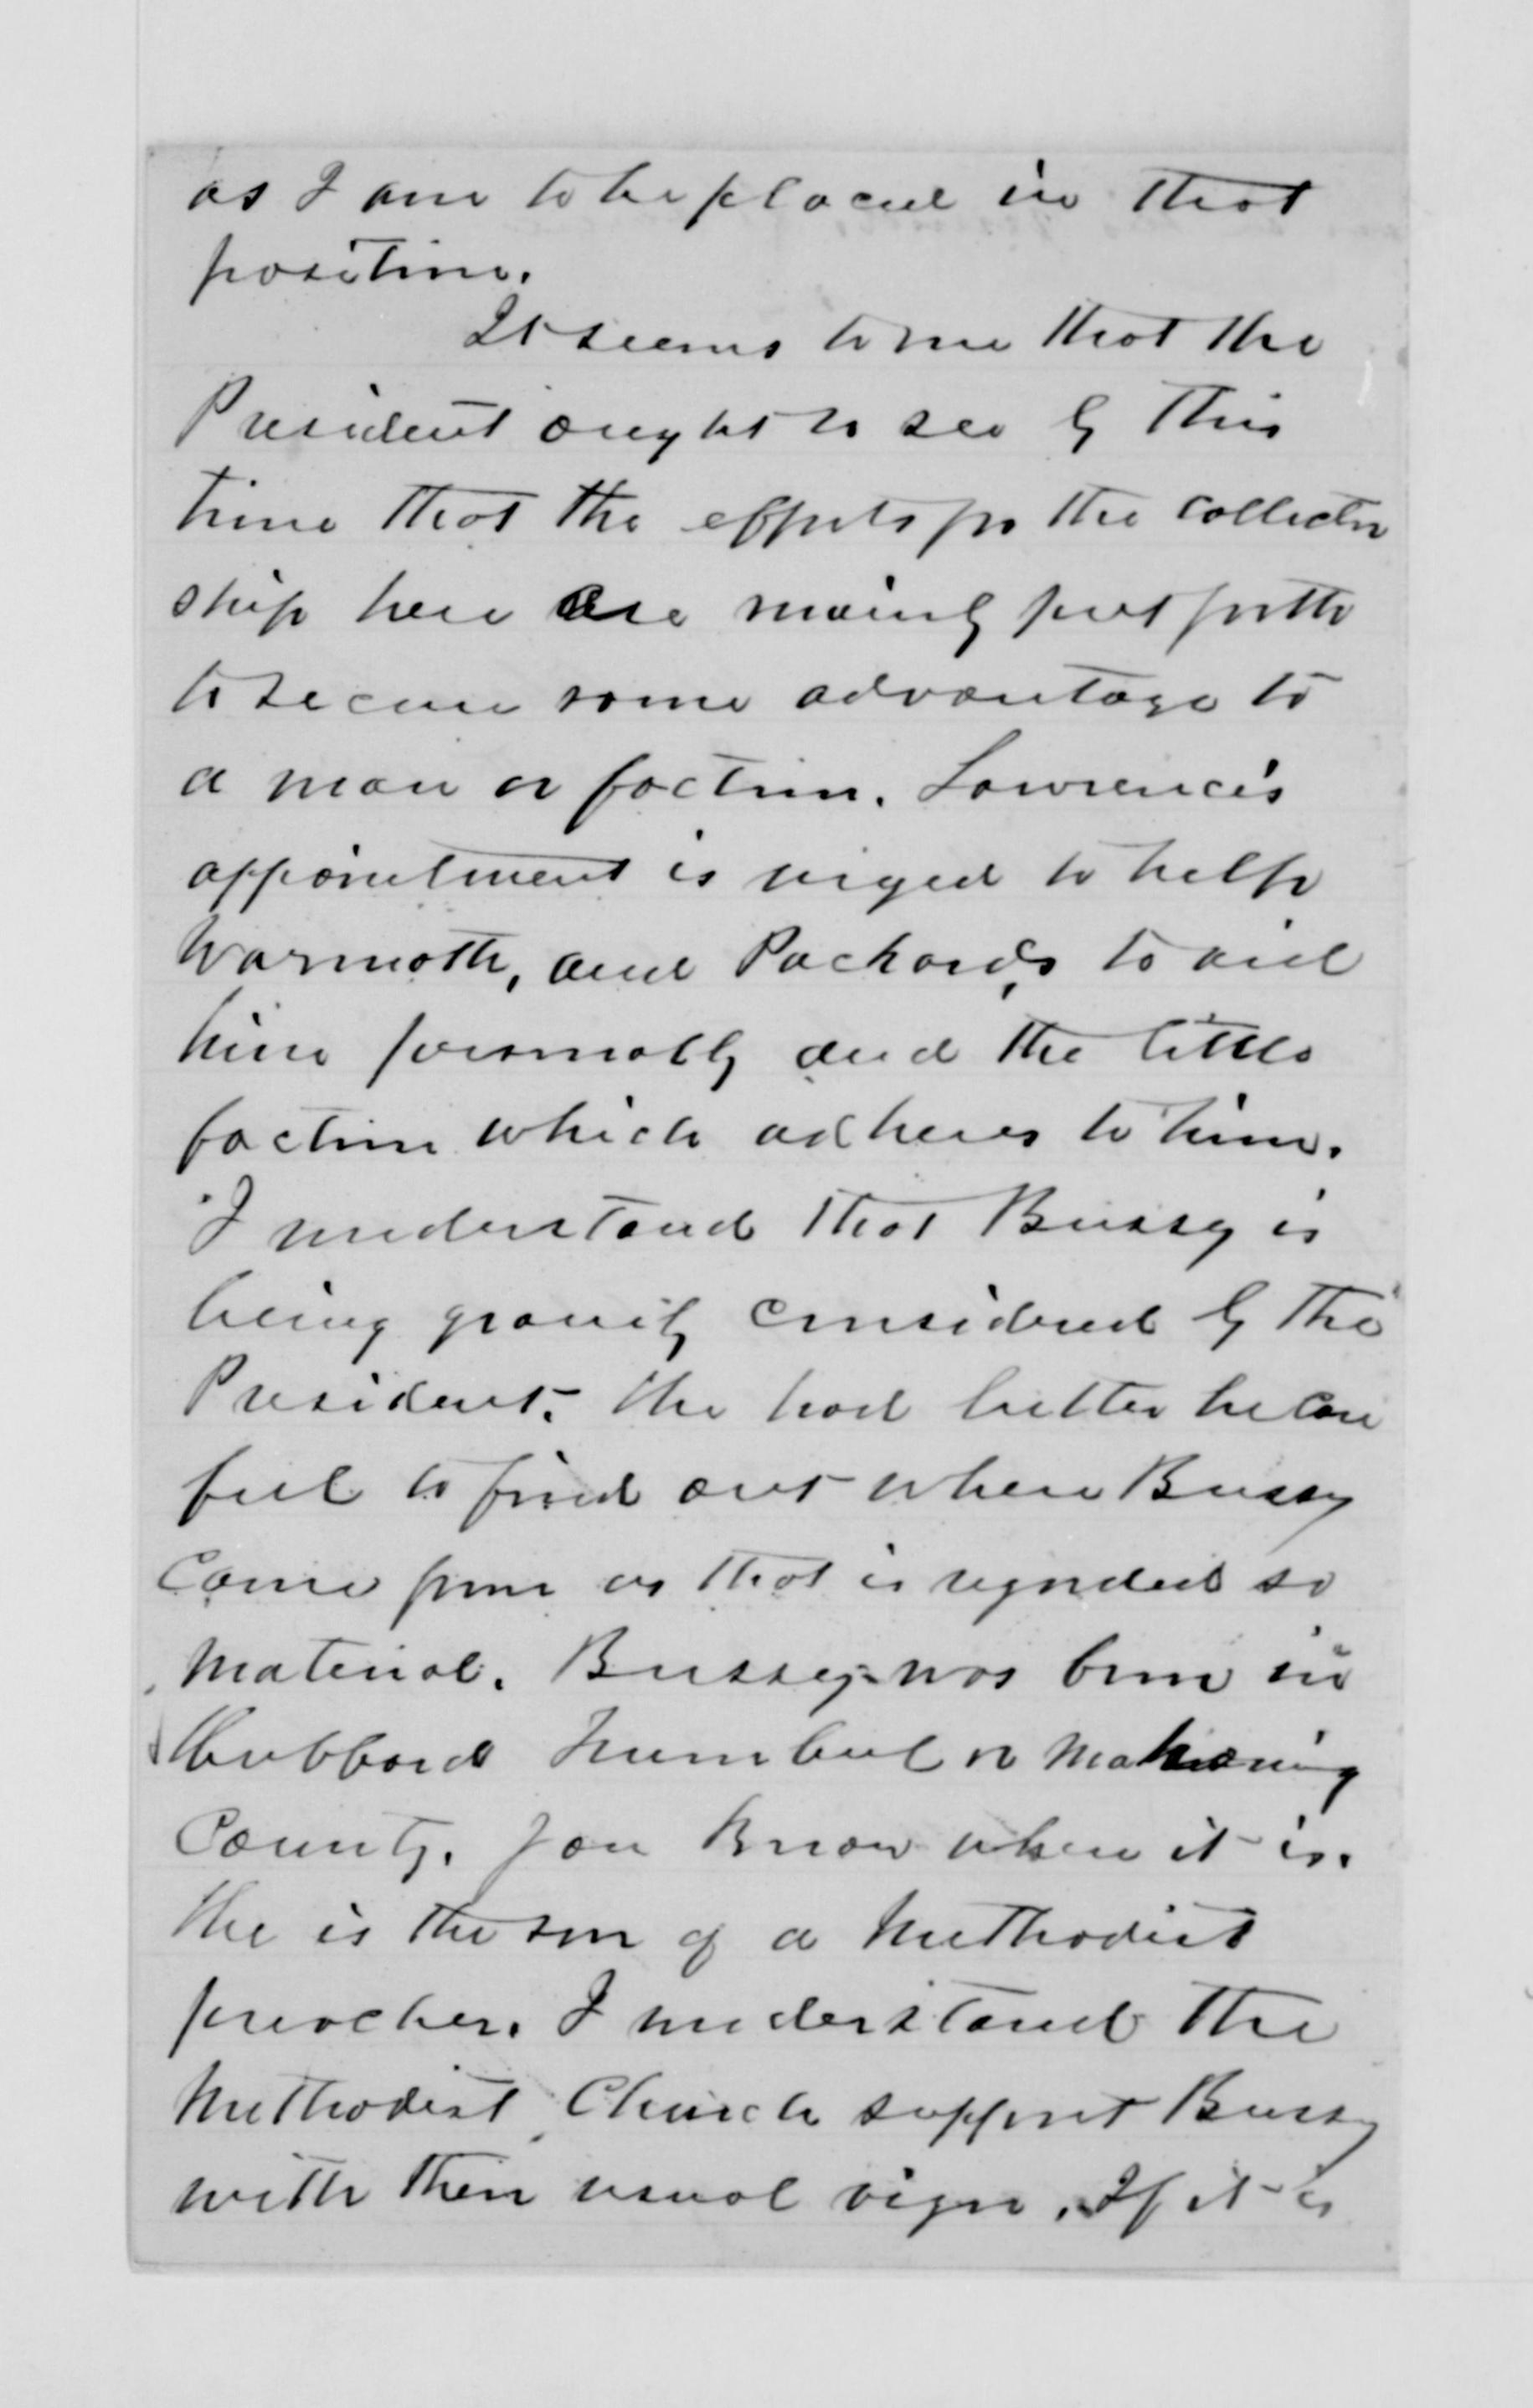 as I am to be placed in that
position.
It seems to me that the
President ought to see by this
time that the efforts for the collector
ship here are mainly put forth
to secure some advantage to
a man or faction. Lawrence's
appointment is urged to help
Warmoth, and Packard's to aid
him personally and the little
faction which adheres to him.
I understand that Bussey is
being gravely considered by the
President. He had better be care
ful to find out where Bussey
came from as that is regarded so
material. Bussey was born in
Hubbard Trumbul or Mahoning
County. You know where it is.
He is the son of a Methodist
preacher. I understand the
Methodist Church support Bussey
with their usual vigor. If it is